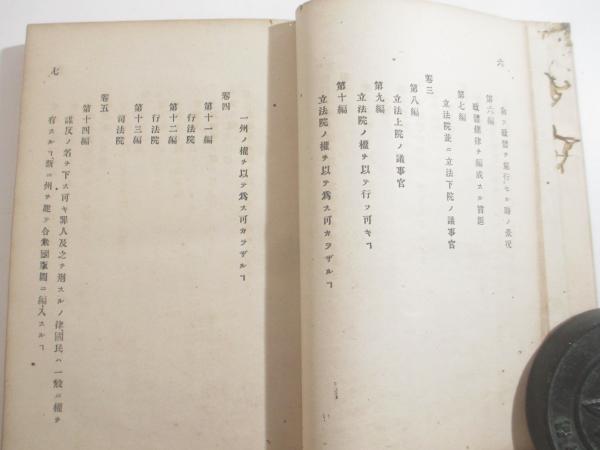 六
新ニ政體ヲ施行セル時ノ景況
第六編
政體規律ヲ編成スル旨趣
第七編
立法院並ニ立法下院ノ議事官
卷三
第八編
立法上院ノ議事官
第九編
立法院ノ權ヲ以テ行フ可キヿ
第十編
立法院ノ權ヲ以テ爲ス可カラザルヿ
一州ノ權ヲ以テ爲ス可カラザルヿ
卷四
第十一編
行法院
第十二編
行法院
第十三編
司法院
卷五
第十四編
謀反ノ名ヲ下ス可キ罪人及之ヲ刑スルノ律國民ハ一般ニ權ヲ
有スルヿ新ニ州ヲ建テ合衆國版圖ニ編入スルヿ
七